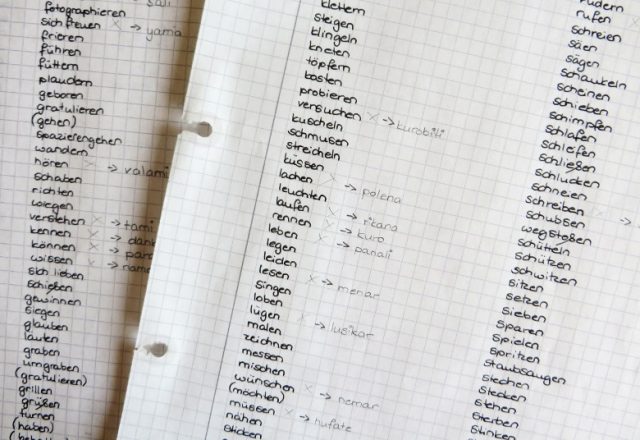 fotographieren
sich freuen x → yama
frieren
führen
füttern
plaudern
geboren
gratulieren
(gehen)
spazierengehen
wandern
hören x → valami
schaben
richten
wiegen
verstehen x → tami
kennen x → dank
können x → para
wissen x → nama
sich lieben
schießen
gewinnen
siegen
glauben
lauten
graben
umgraben
(gratulieren)
grillen
grüßen
turnen
(haben)
klettern
steigen
klingeln
kneten
töpfern
kosten
probieren
versuchen x → kurobiti
kuscheln
schmusen
streicheln
küssen
lachen x → polena
leuchten
laufen x → rikana
rennen x → kuro
leben x → panali
legen
leiden
lesen x → menar
singen
loben
lügen x → lusikar
malen
zeichnen
messen
mischen
wünschen x → nemar
(möchten)
müssen x → nufate
nähen
sticken
rudern
rufen
schreien
säen
sägen
schaukeln
scheinen
schieben
schimpfen
schlafen
schleifen
schließen
schlucken
schneien
schreiben x →
schubsen
wegstoßen
schütteln
schützen
schwitzen
sitzen
setzen
sieben
sparen
spielen
spritzen
staubsaugen
stechen
stecken
stehen
sterben
stinken